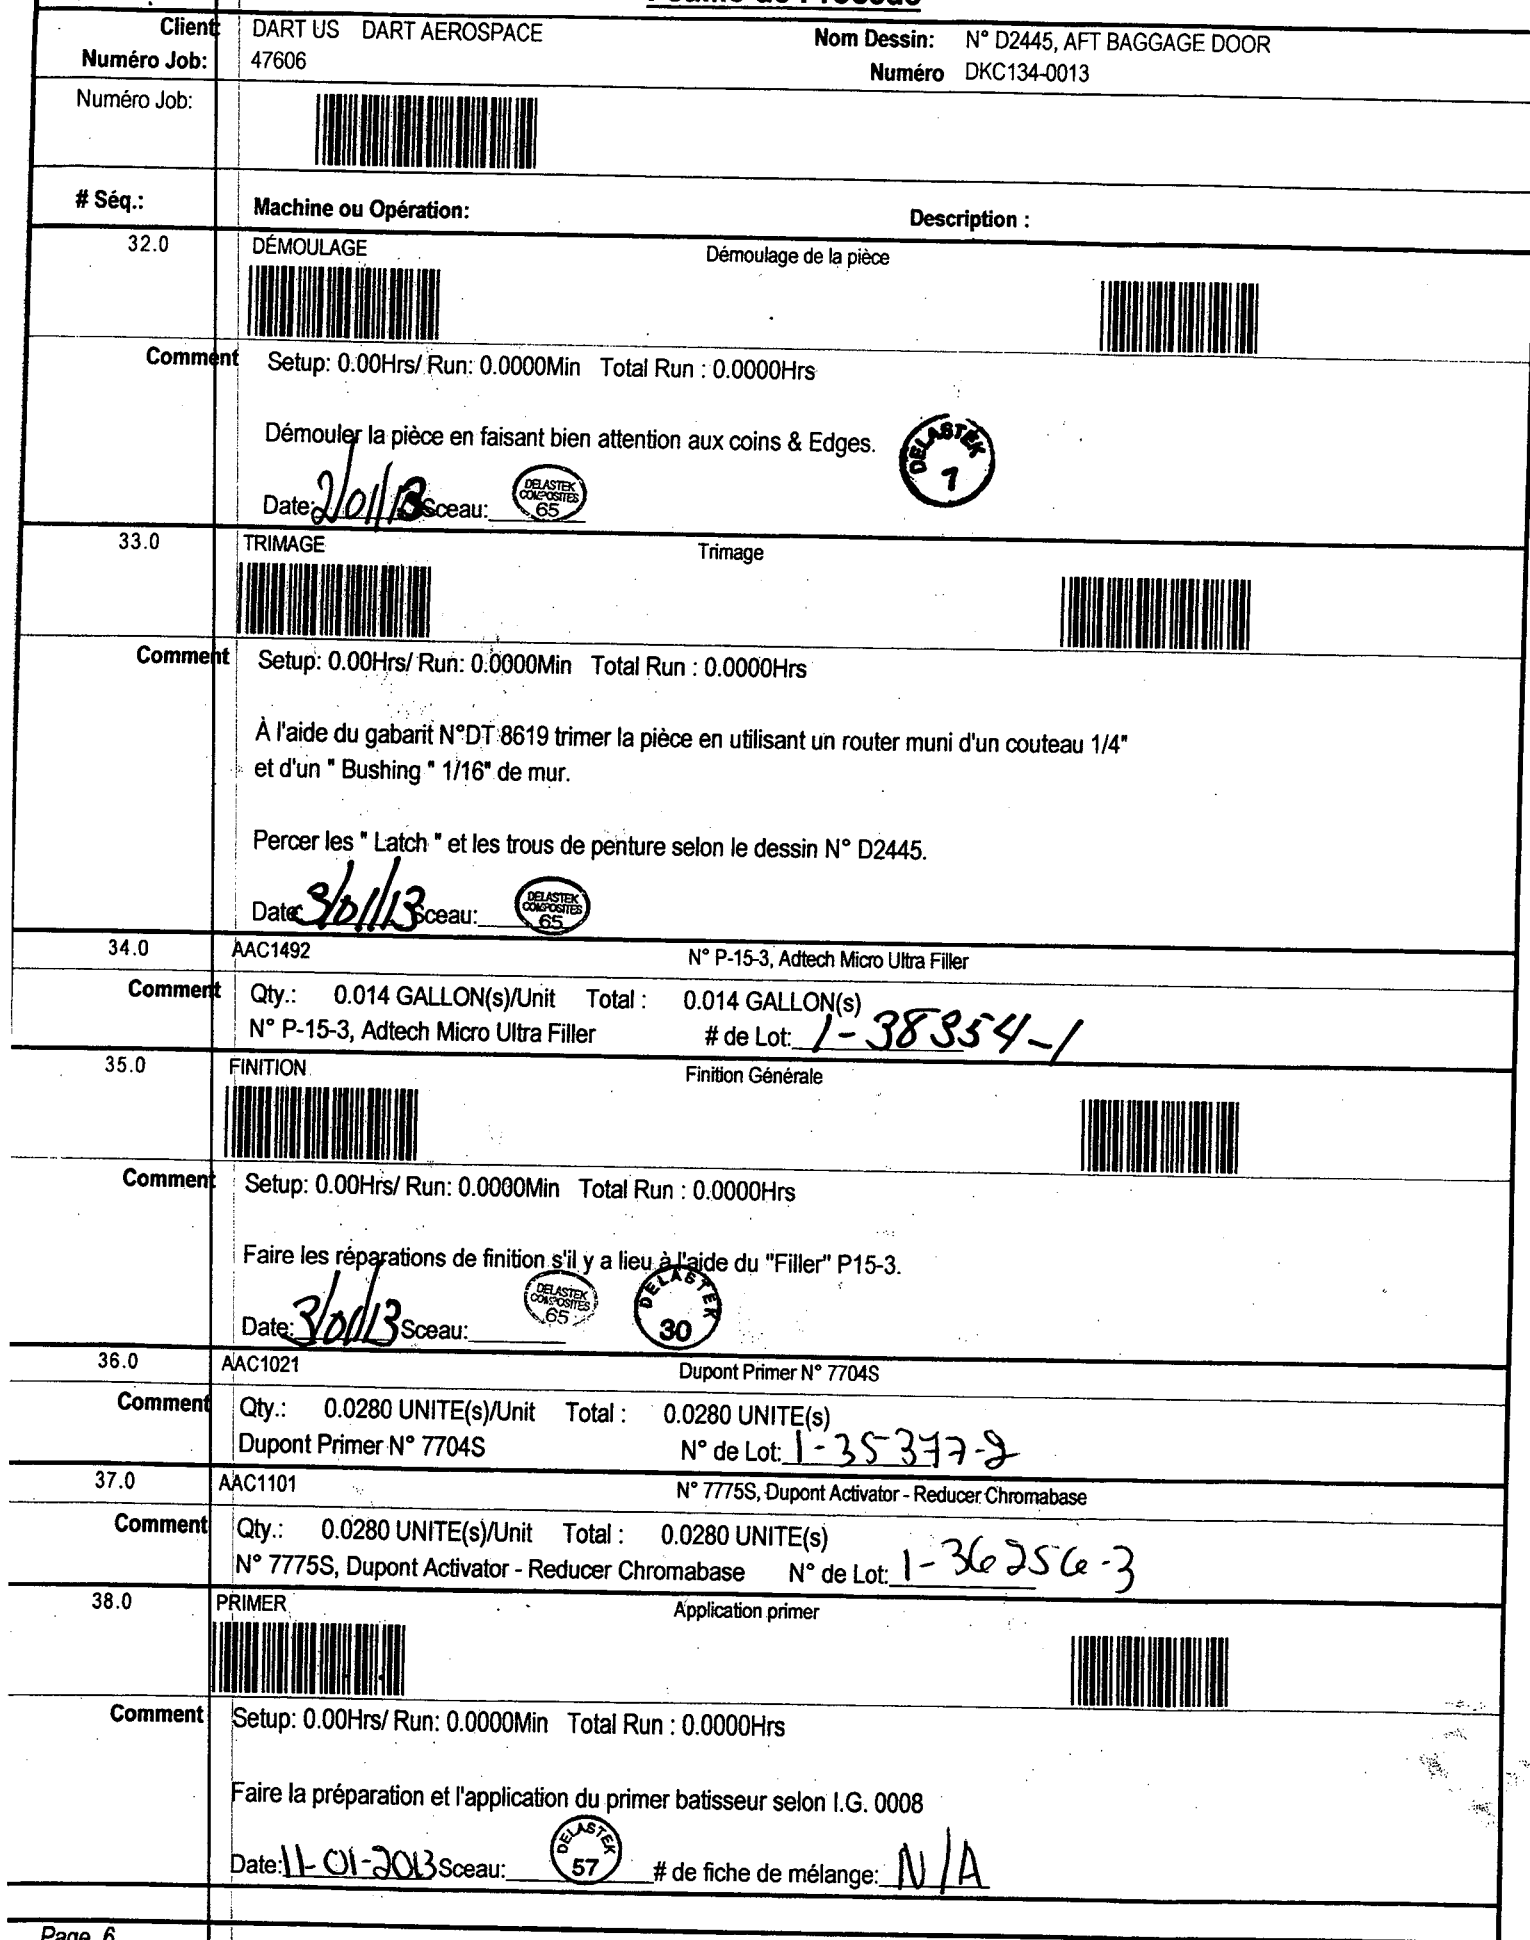 Client: DART US DART AEROSPACE Nom Dessin: N° D2445, AFT BAGGAGE DOOR
Numéro Job: 47606 Numéro DKC134-0013
Numéro Job:
# Séq.: Machine ou Opération: Description :
32.0 DÉMOULAGE Démoulage de la pièce
Comment Setup: 0.00Hrs/ Run: 0.0000Min Total Run : 0.0000Hrs
Démouler la pièce en faisant bien attention aux coins & Edges.
DELASTEK 7
Date: 2/01/13 Sceau: DELASTEK COMPOSITES 65
33.0 TRIMAGE Trimage
Comment Setup: 0.00Hrs/ Run: 0.0000Min Total Run : 0.0000Hrs
À l'aide du gabarit N°DT 8619 trimer la pièce en utilisant un router muni d'un couteau 1/4"
et d'un " Bushing " 1/16" de mur.
Percer les " Latch " et les trous de penture selon le dessin N° D2445.
Date: 3/01/13 Sceau: DELASTEK COMPOSITES 65
34.0 AAC1492 N° P-15-3, Adtech Micro Ultra Filler
Comment Qty.: 0.014 GALLON(s)/Unit Total : 0.014 GALLON(s)
N° P-15-3, Adtech Micro Ultra Filler # de Lot: 1-38354-1
35.0 FINITION Finition Générale
Comment Setup: 0.00Hrs/ Run: 0.0000Min Total Run : 0.0000Hrs
Faire les réparations de finition s'il y a lieu à l'aide du "Filler" P15-3.
Date: 3/01/13 Sceau: DELASTEK COMPOSITES 65 DELASTEK 30
36.0 AAC1021 Dupont Primer N° 7704S
Comment Qty.: 0.0280 UNITE(s)/Unit Total : 0.0280 UNITE(s)
Dupont Primer N° 7704S N° de Lot: 1-35377-2
37.0 AAC1101 N° 7775S, Dupont Activator - Reducer Chromabase
Comment Qty.: 0.0280 UNITE(s)/Unit Total : 0.0280 UNITE(s)
N° 7775S, Dupont Activator - Reducer Chromabase N° de Lot: 1-36256-3
38.0 PRIMER Application primer
Comment Setup: 0.00Hrs/ Run: 0.0000Min Total Run : 0.0000Hrs
Faire la préparation et l'application du primer batisseur selon I.G. 0008
Date: 11-01-2013 Sceau: DELASTEK 57 # de fiche de mélange: N/A
Page 6